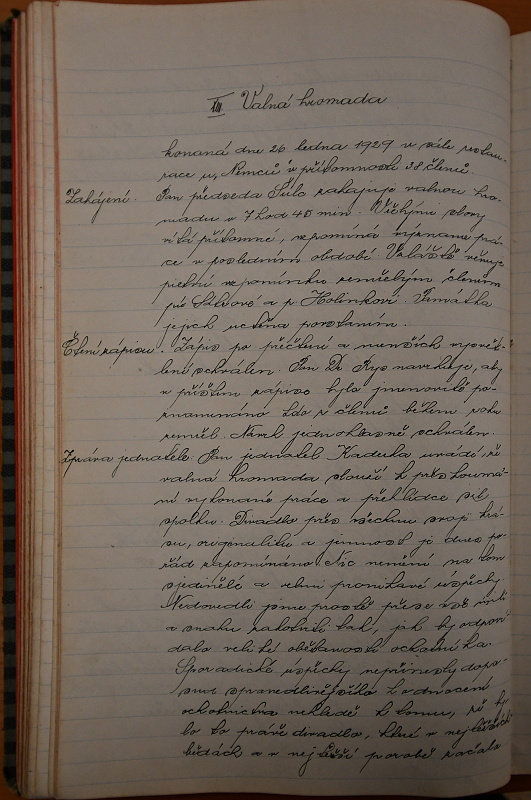 XIII Valná hromada
konaná dne 26 ledna 1929 v sále restau-
race u „Němců" v přítomnosti 38 členů.
Zahájení. Pan předseda Šulc zahajuje valnou hro-
madu v 7 hod 45 min. Vřelými slovy
vítá přítomné, vzpomíná významu prá-
ce v posledním období. Zvláště věnuje
pietní vzpomínku zemřelým členům
pí a p. Holinkovi. Památka
jejich uctěna povstáním.
Čtení zápisu. Zápis po přečtení a menších vysvět-
lení schválen. Pan Dr Rys navrhuje, aby
v příštím zápise bylo jmenovitě po-
znamenáno kdo z členů během roku
zemřel. Návrh jednohlasně schválen.
Zpráva jednatele: Pan jednatel Kaduka uvádí, že
valná hromada slouží k přezkoumá-
ní vykonané práce a přehlídce sil
spolku. Divadlo přes všechnu svoji krá-
su, originalitu a jemnost je dnes po-
řád zapomínáno Nic nemění na tom
ojedinělé a velmi pronikavé úspěchy.
Nedovedli jsme prostě přese vše
a snahu zakotviti tak, jak by odpoví-
dalo veliké obětavosti ochotníka.
Sporadické úspěchy nepřinesly dopo-
sud spravedlivějšího hodnocení
ochotnictva nehledě k tomu, že by-
lo to právě divadlo, které v nejtěžších
bědách a v nejtěžší porobě začalo